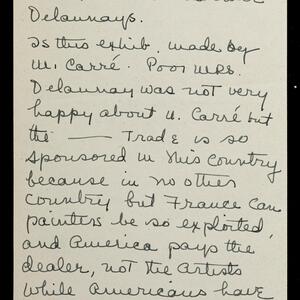 Delaunays.
Is this exhib. made by
M. Carré. Poor Mrs.
Delaunay was not very
happy about M. Carré but
the —— Trade is so
sponsored in this country
because in no other
country but France can
painters be so exploited,
and America pays the
dealer, not the artists
while Americans have